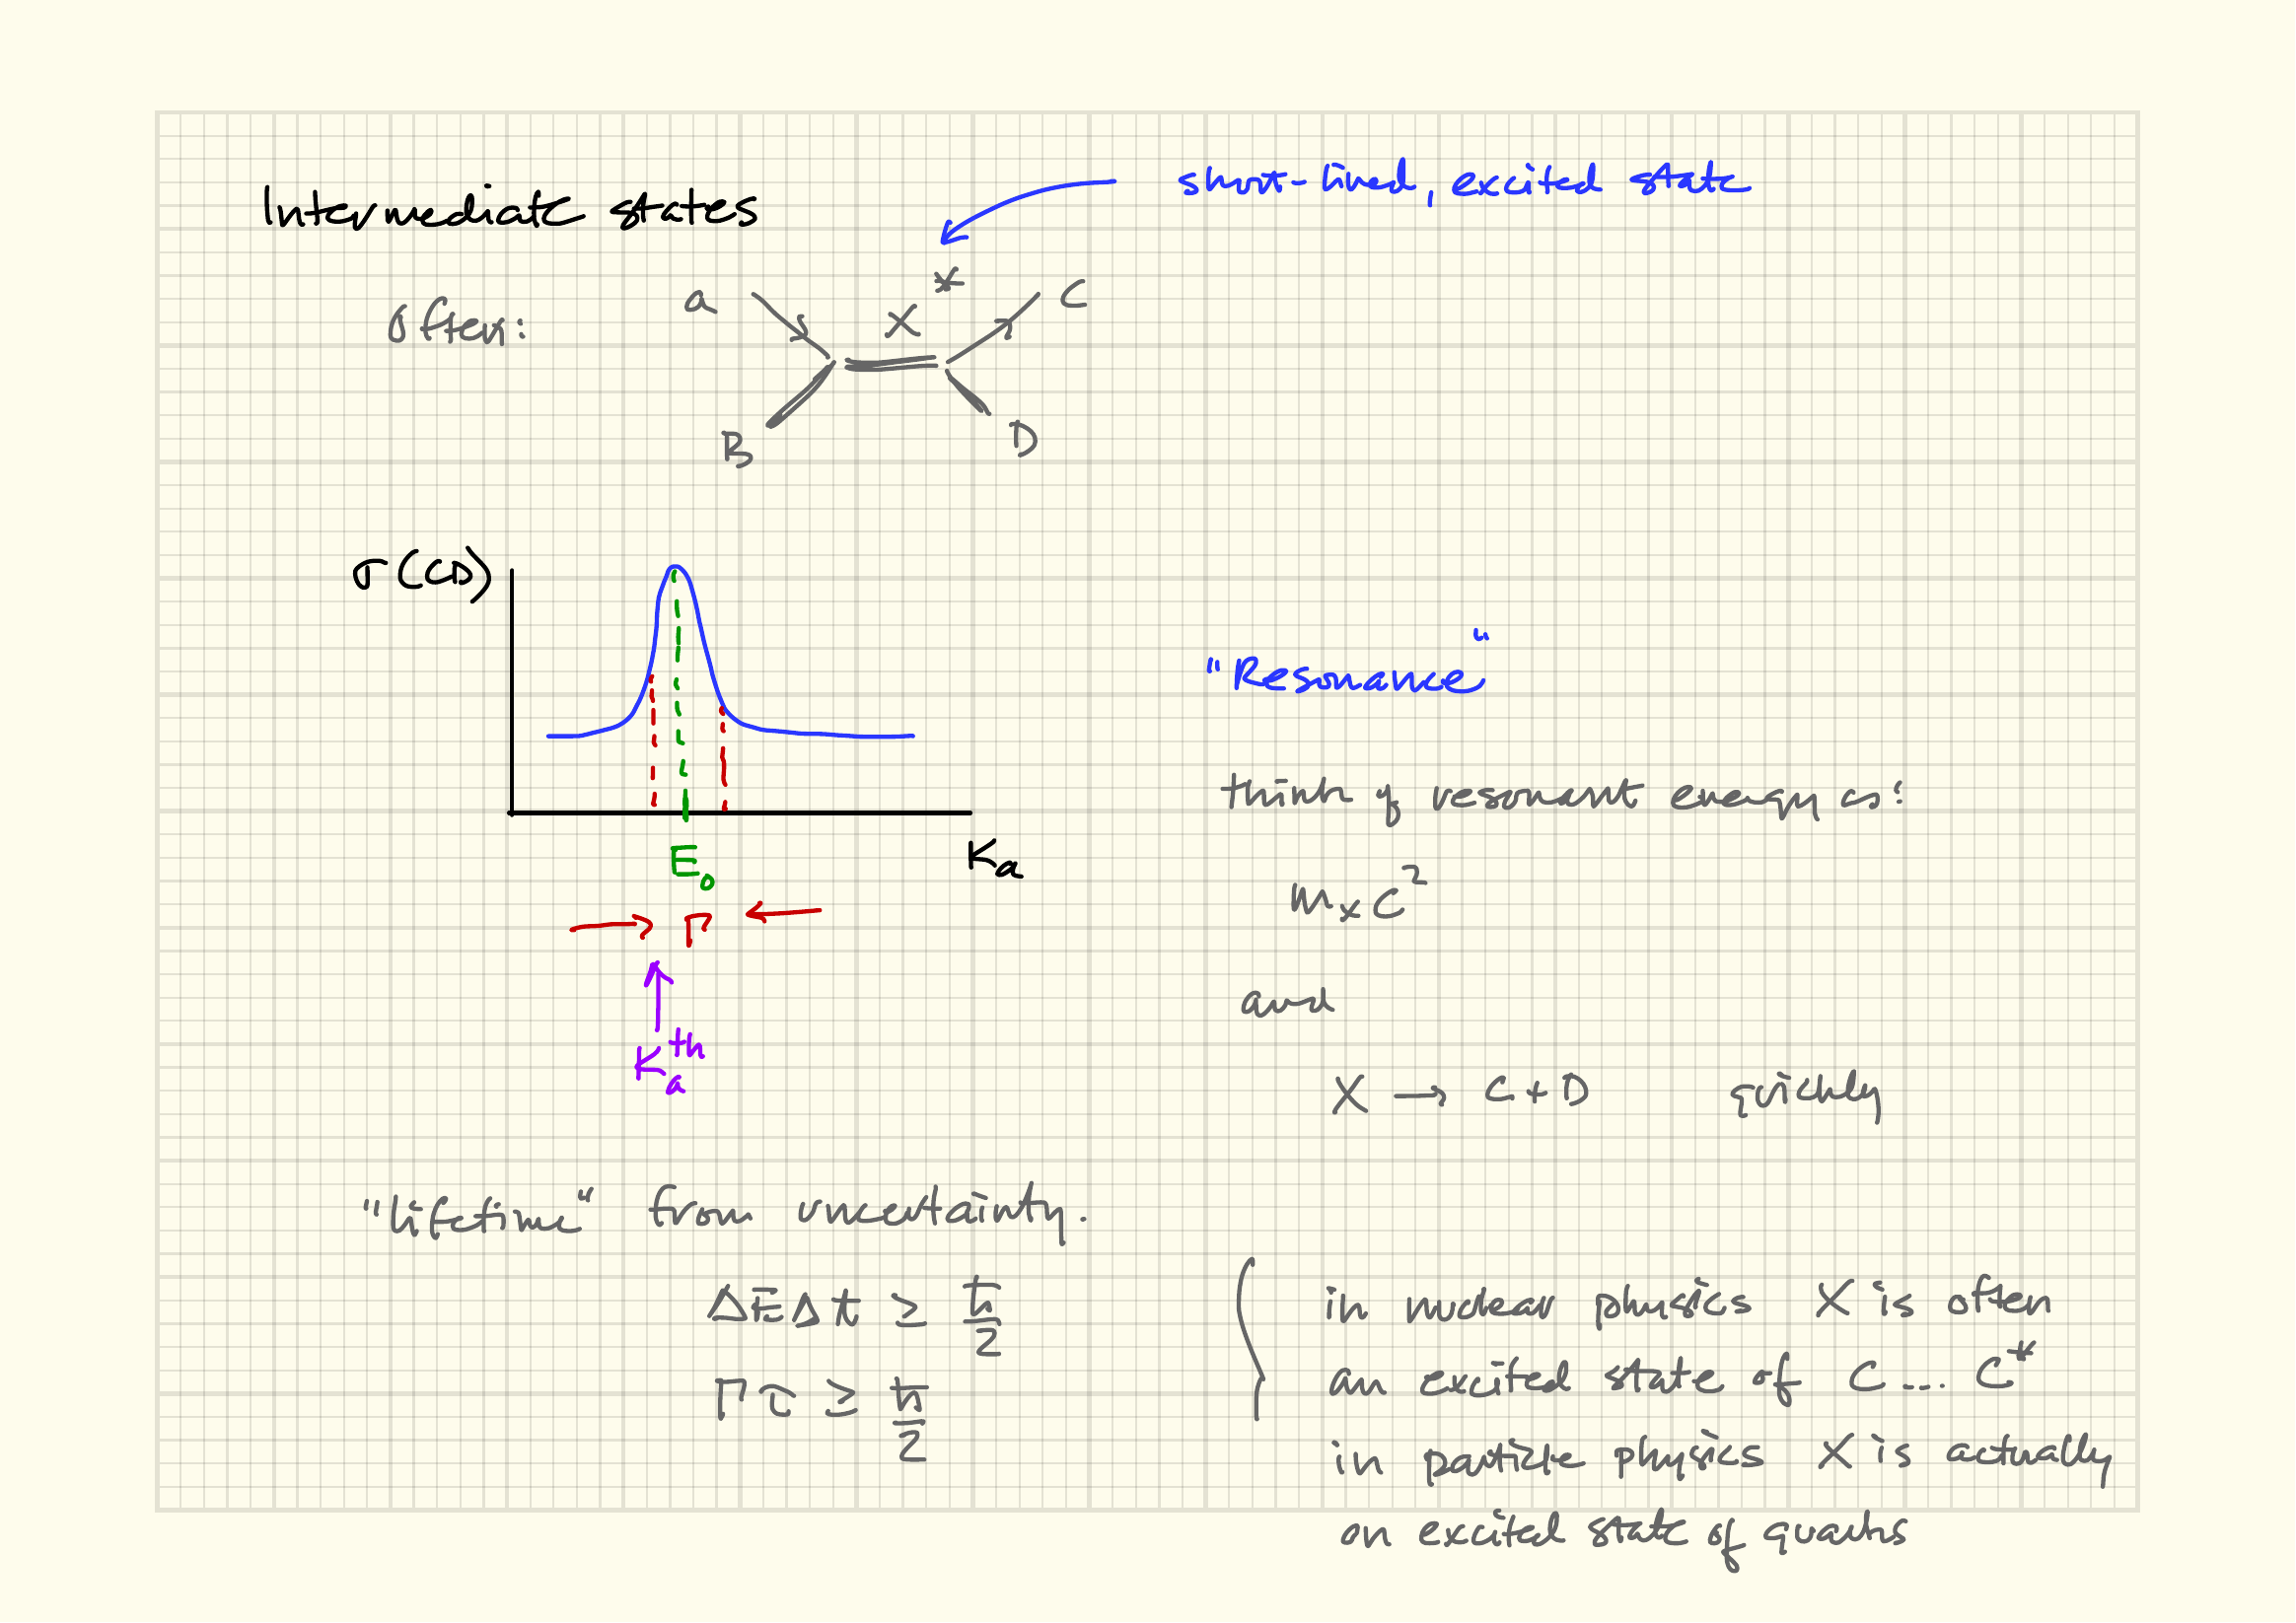 Intermediate states
short-lived, excited state
Often:
a
X*
C
B
D
σ(CD)
E₀
Kₐ
Γ
Kₐᵗʰ
"Resonance"
think of resonant energy as:
mₓc²
and
X → C + D quickly
"lifetime" from uncertainty.
ΔEΔt ≥ ħ/2
Γτ ≥ ħ/2
in nuclear physics X is often
an excited state of C ... C*
in particle physics X is actually
an excited state of quarks